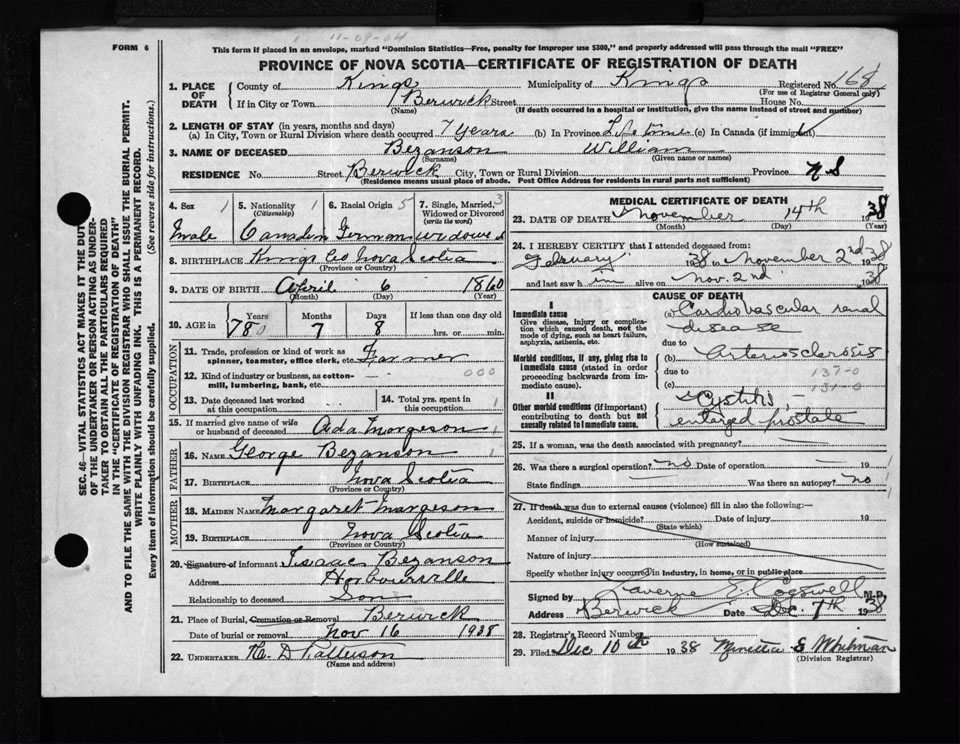 11-09-04
FORM 6
This form if placed in an envelope, marked "Dominion Statistics—Free, penalty for improper use $300," and properly addressed will pass through the mail "FREE"
PROVINCE OF NOVA SCOTIA—CERTIFICATE OF REGISTRATION OF DEATH
SEC. 46—VITAL STATISTICS ACT MAKES IT THE DUTY
OF THE UNDERTAKER OR PERSON ACTING AS UNDER-
TAKER TO OBTAIN ALL THE PARTICULARS REQUIRED
IN THE "CERTIFICATE OF REGISTRATION OF DEATH"
AND TO FILE THE SAME WITH THE DIVISION REGISTRAR WHO SHALL ISSUE THE BURIAL PERMIT.
WRITE PLAINLY WITH UNFADING INK. THIS IS A PERMANENT RECORD.
Every item of Information should be carefully supplied. (See reverse side for instructions.)
1. PLACE OF DEATH County of Kings Municipality of Kings Registered No. 168
(For use of Registrar General only)
If in City or Town Berwick Street House No.
(Name) (If death occurred in a hospital or institution, give the name instead of street and number)
2. LENGTH OF STAY (in years, months and days)
(a) In City, Town or Rural Division where death occurred 7 years (b) In Province Life time (c) In Canada (if immigrant)
3. NAME OF DECEASED Bezanson William
(Surname) (Given name or names)
RESIDENCE No. Street Berwick City, Town or Rural Division Province N S
(Residence means usual place of abode. Post Office Address for residents in rural parts not sufficient)
4. Sex 1 5. Nationality 1 6. Racial Origin 5 7. Single, Married, 3
(Citizenship) Widowed or Divorced
(write the word)
Male German widowed
8. BIRTHPLACE Kings Co Nova Scotia
(Province or Country)
9. DATE OF BIRTH April 6 1860
(Month) (Day) (Year)
10. AGE in Years Months Days If less than one day old
78 7 8 hrs. or min.
OCCUPATION
11. Trade, profession or kind of work as
spinner, teamster, office clerk, etc. Farmer
12. Kind of industry or business, as cotton-
mill, lumbering, bank, etc. 000
13. Date deceased last worked
at this occupation
14. Total yrs. spent in
this occupation
15. If married give name of wife
or husband of deceased Ada Margeson
FATHER
16. NAME George Bezanson
17. BIRTHPLACE Nova Scotia
(Province or Country)
MOTHER
18. MAIDEN NAME Margaret Margeson
19. BIRTHPLACE Nova Scotia
(Province or Country)
20. Signature of informant Isaac Bezanson
Address Harbourville
Relationship to deceased Son
21. Place of Burial, Cremation or Removal Berwick
Date of burial or removal Nov 16 1938
22. UNDERTAKER H. D Patterson
(Name and address)
MEDICAL CERTIFICATE OF DEATH
23. DATE OF DEATH November 14th 1938
(Month) (Day) (Year)
24. I HEREBY CERTIFY that I attended deceased from:
February 1938 to November 2nd 1938
and last saw him alive on Nov. 2nd 1938
CAUSE OF DEATH
I
Immediate cause
Give disease, injury or complica-
tion which caused death, not the
mode of dying, such as heart failure,
asphyxia, asthenia, etc.
(a) Cardiovascular renal
disease
due to
Morbid conditions, if any, giving rise to
immediate cause (stated in order
proceeding backwards from im-
mediate cause).
(b) Arteriosclerosis
due to 137-0
(c) 131-0
II
Other morbid conditions (if important)
contributing to death but not
causally related to immediate cause.
Cystitis
enlarged prostate
25. If a woman, was the death associated with pregnancy?
26. Was there a surgical operation? no Date of operation 19
State findings Was there an autopsy? no
27. If death was due to external causes (violence) fill in also the following:—
Accident, suicide or homicide? Date of injury 19
(State which)
Manner of injury
(How sustained)
Nature of injury
Specify whether injury occurred in industry, in home, or in public place
Signed by Laverne E. Cogswell M.D.
Address Berwick Date Dec. 7th 1938
28. Registrar's Record Number
29. Filed Dec 10th 1938 S Whitman
(Division Registrar)